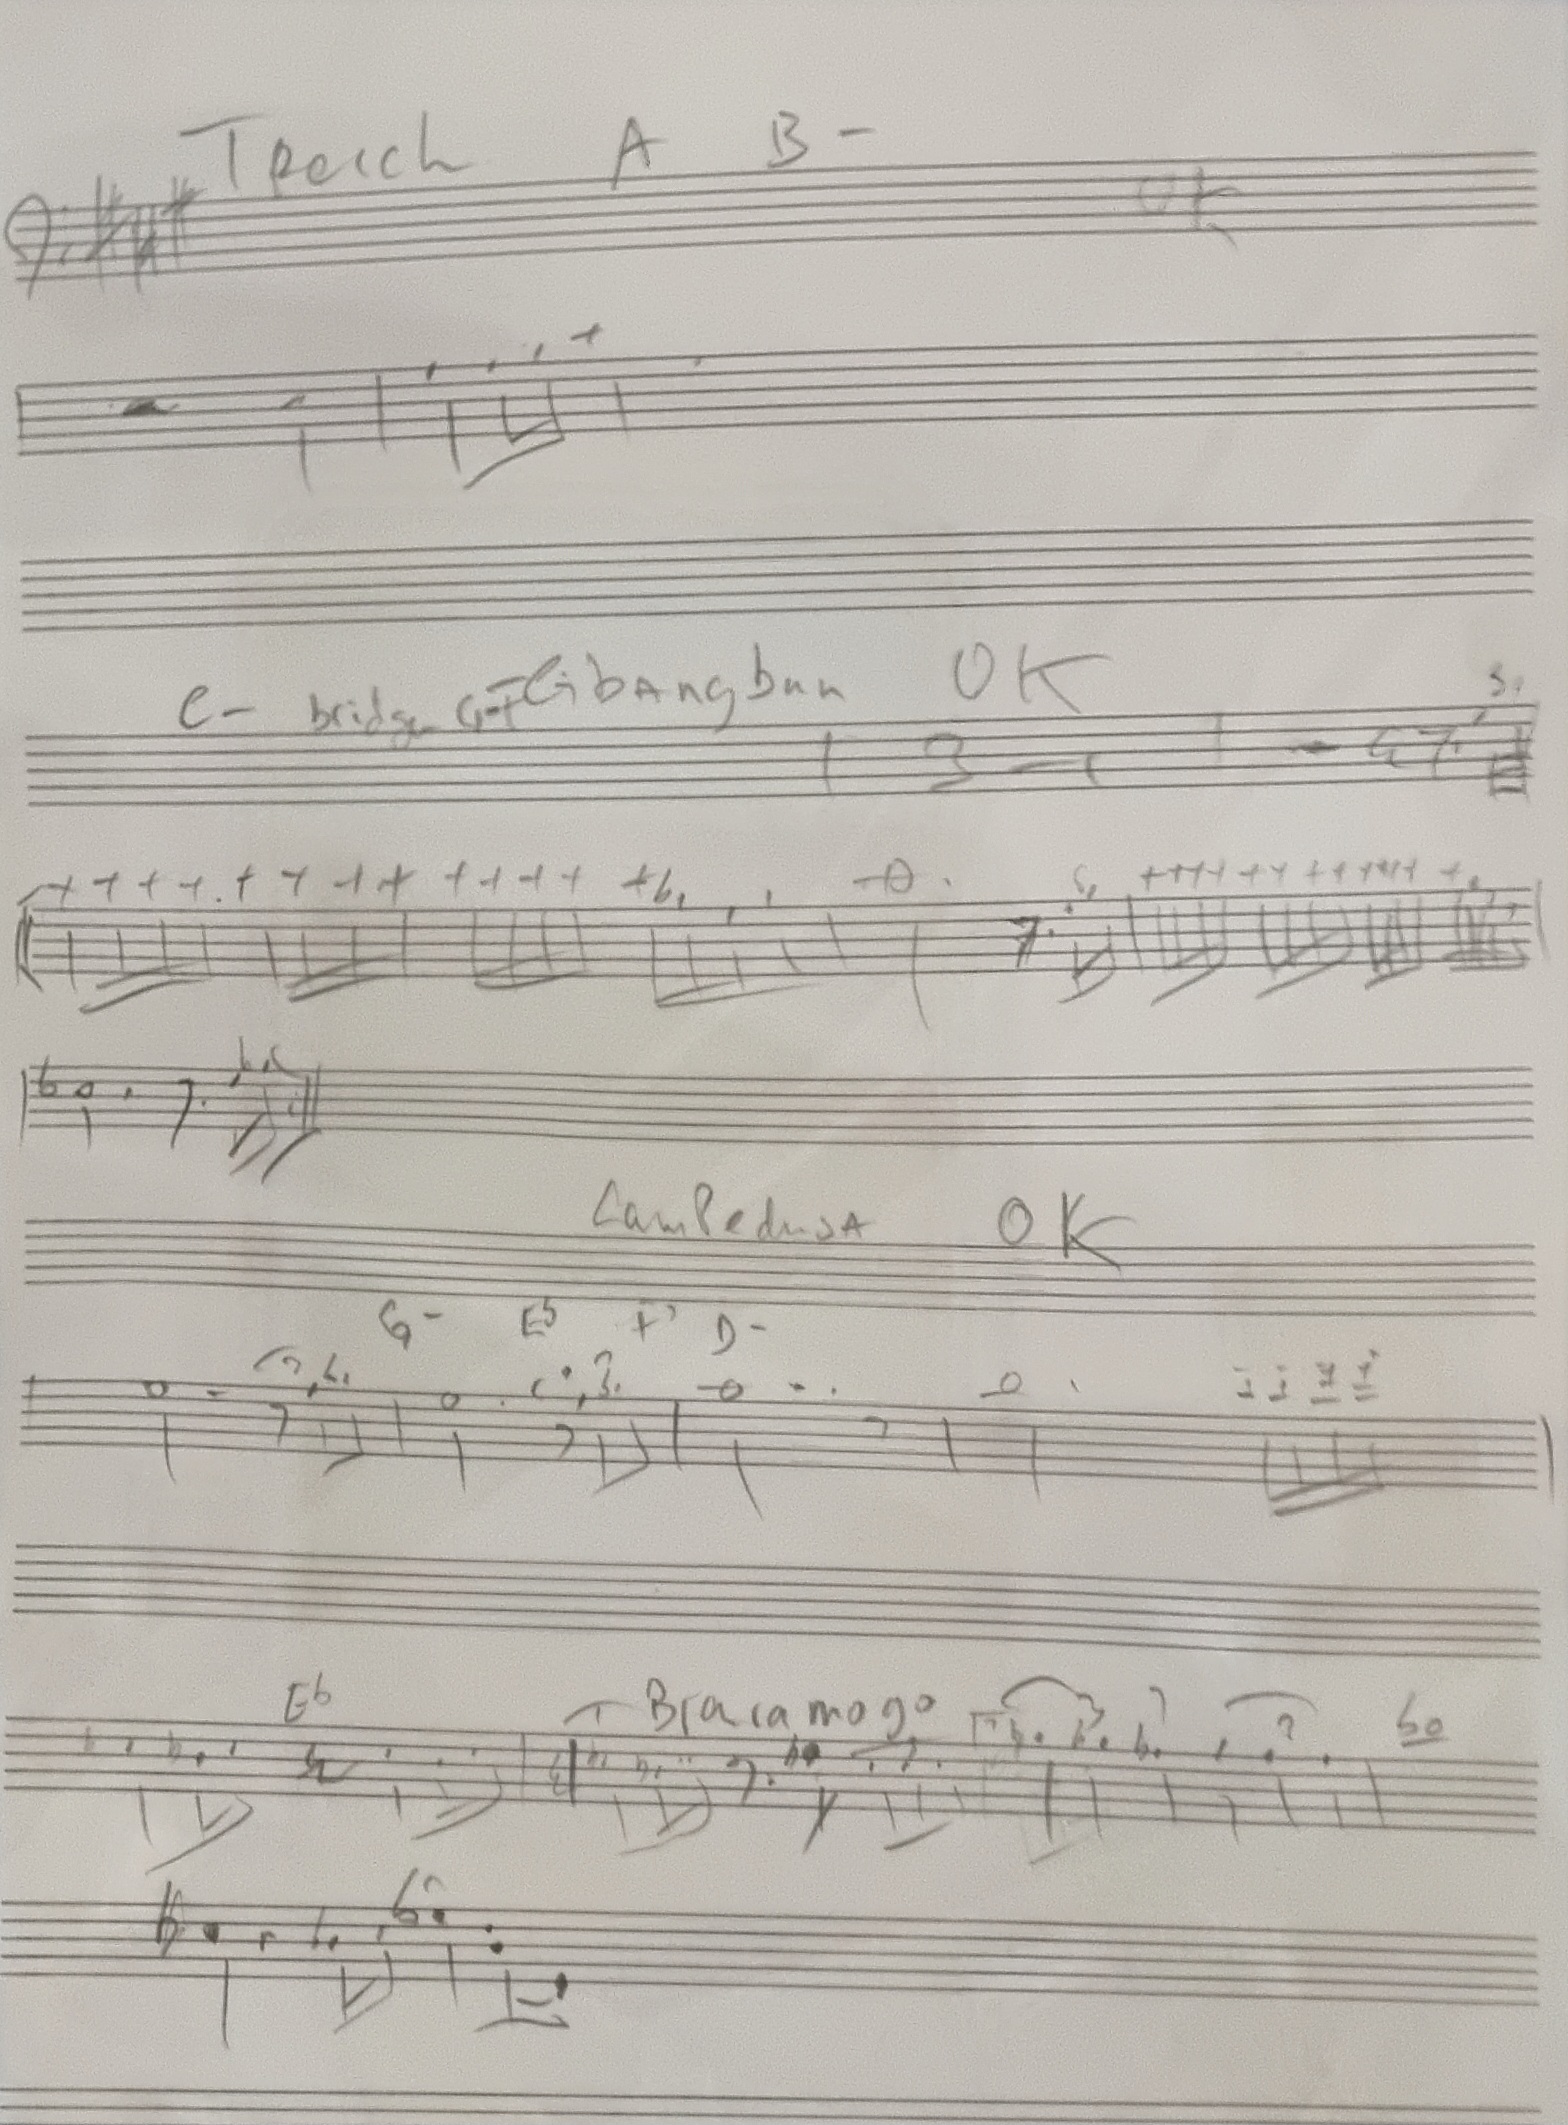 Treich A B-
OK
C- bridge G- Gibangbuu OK
Lampedusa OK
G- Eb F D-
Eb Bracamogo